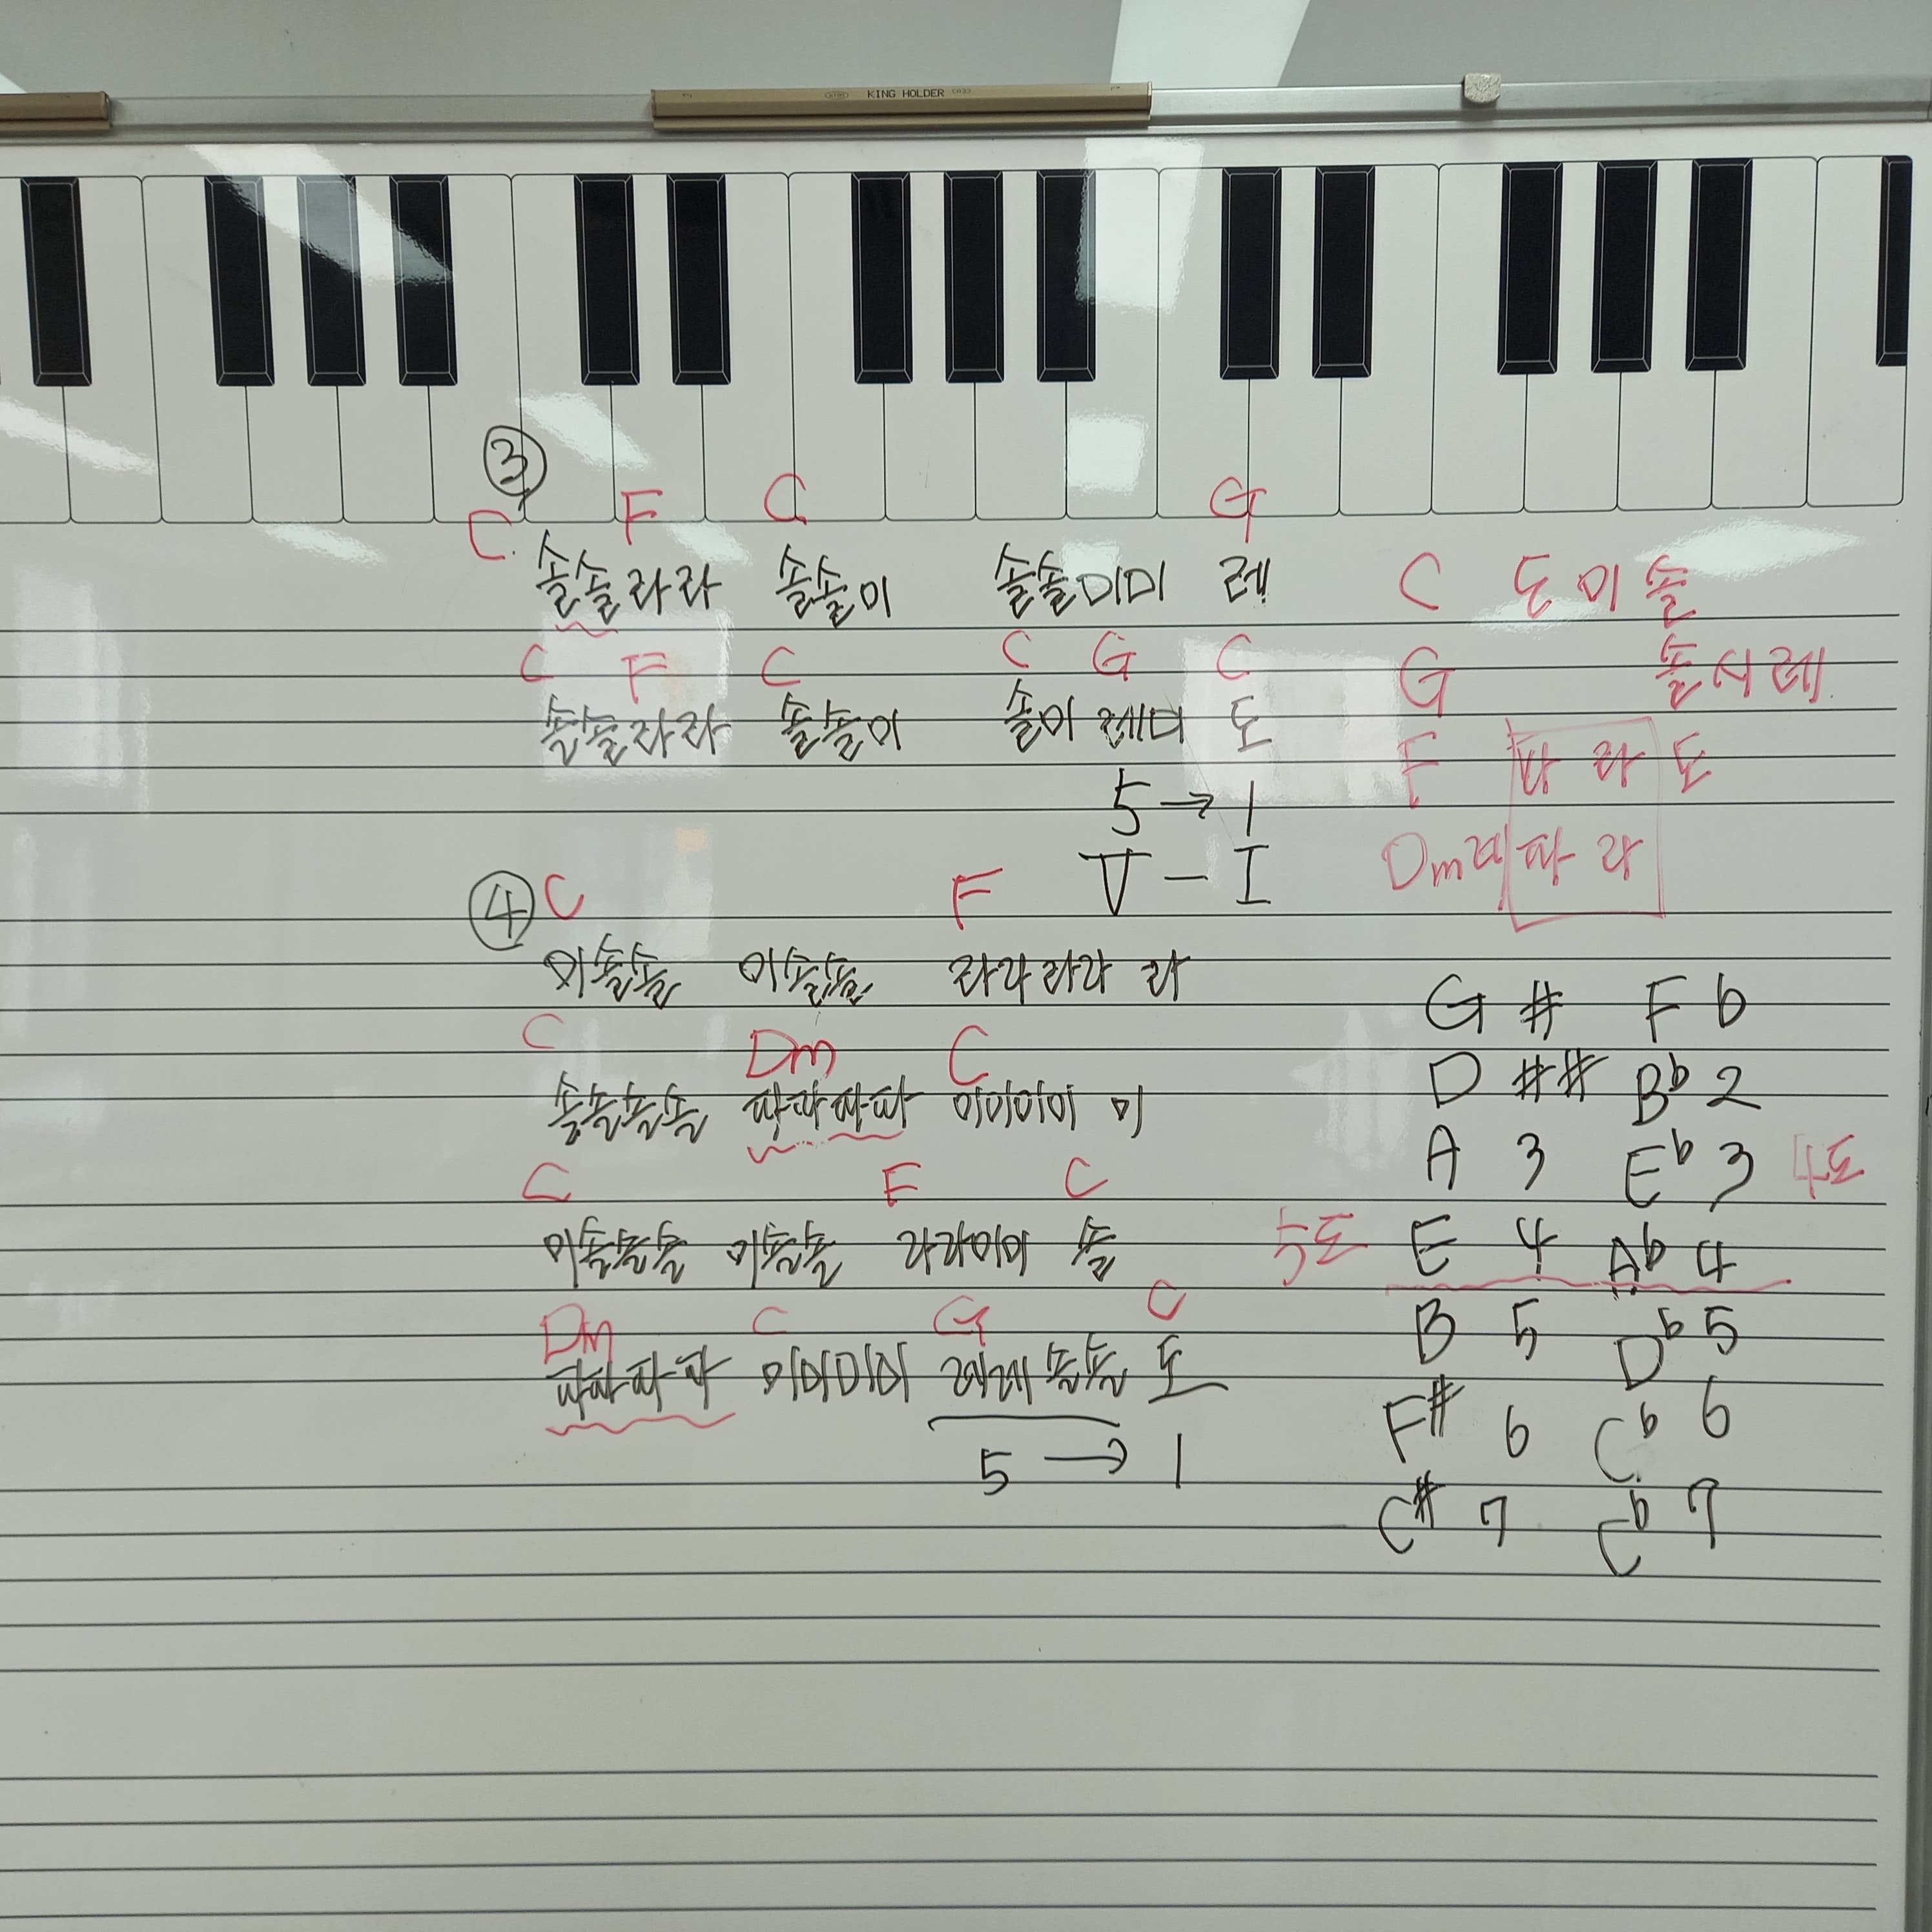 KING HOLDER (A3)
③
C F C G
솔솔라라 솔솔미 솔솔미미 레
C 도 미 솔
C F C C G C
G 솔시레
솔솔라라 솔솔미 솔미레미 도
F 파 라 도
5 → 1
V - I
Dm 레 파 라
④ C F
미솔솔 미솔솔 라라라라 라
G # F b
C Dm C
D ## Bb 2
솔솔솔솔 파파파파 미미미미 미
A 3 Eb 3 4도
C F C
미솔솔솔 미솔솔 라라미미 솔
5도 E 4 Ab 4
Dm C G C
B 5 Db 5
파파파파 미미미미 레레솔솔 도
F# 6 Cb 6
5 → 1
C# 7 Cb 7